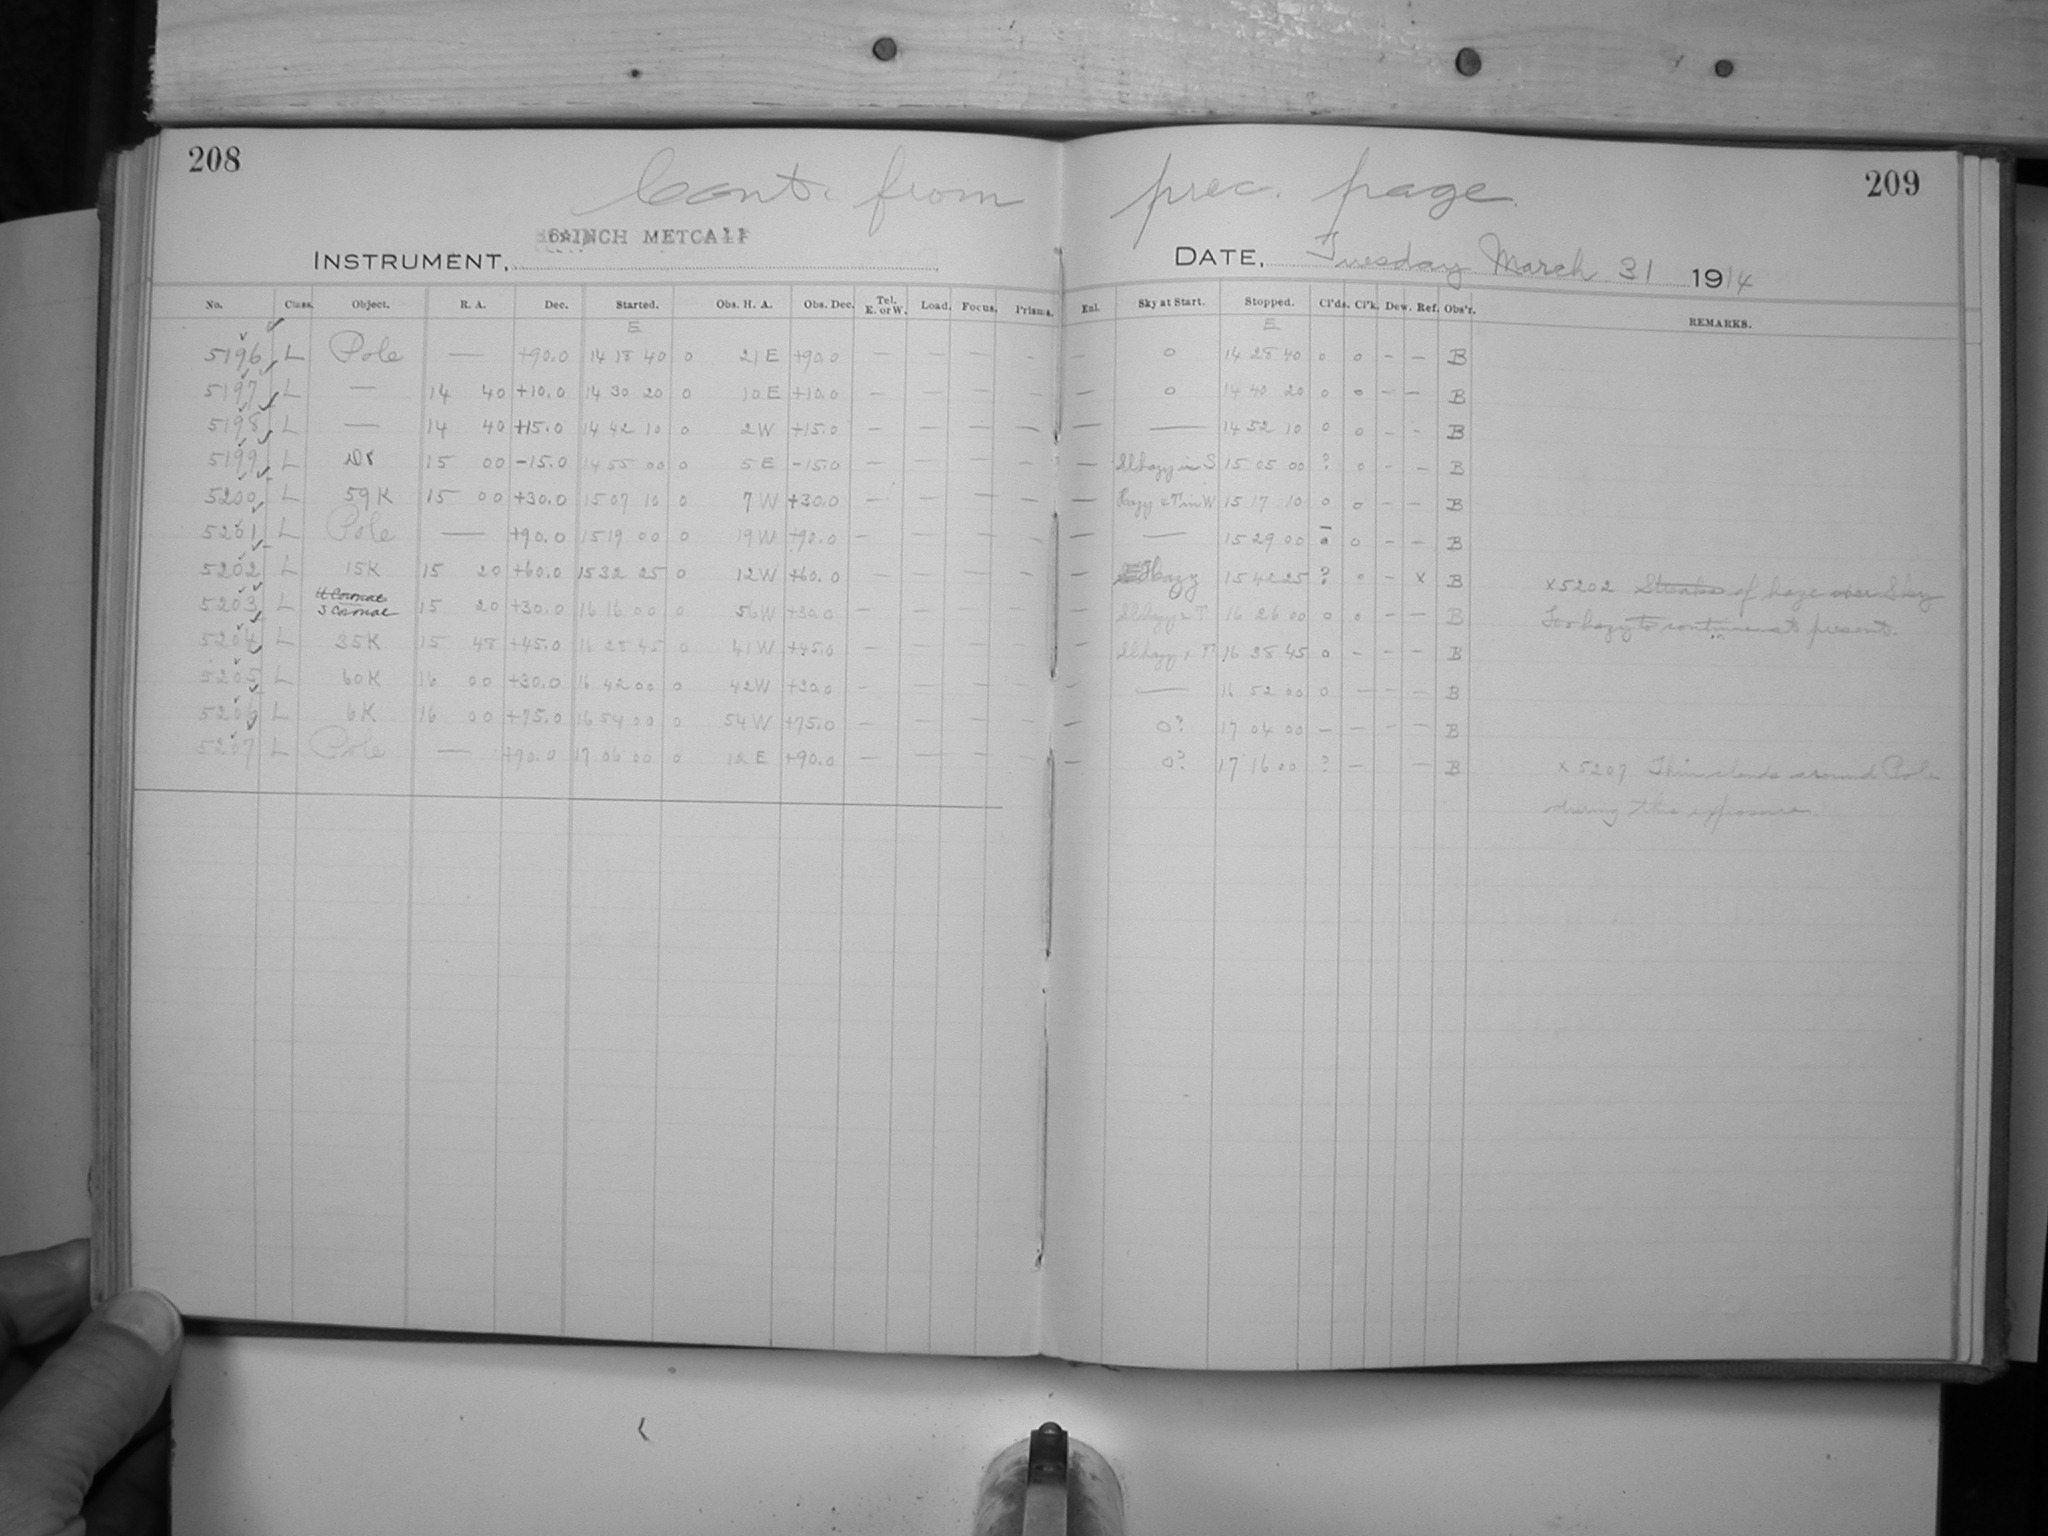 208
Cont. from prec. page
209
6 INCH METCALF
INSTRUMENT,
DATE, Tuesday March 31 1914
No. Class. Object. R. A. Dec. Started. Obs. H. A. Obs. Dec. Tel. E. or W. Load. Focus. Prisms. Enl. Sky at Start. Stopped. Cl'ds. Cl'k. Dew. Ref. Obs'r. REMARKS.
E E
5196 L Pole — +90.0 14 18 40 0 21 E +90.0 — — — — — 0 14 28 40 0 0 — — B
5197 L — 14 40 +10.0 14 30 20 0 10 E +10.0 — — — — — 0 14 40 20 0 0 — — B
5198 L — 14 40 +15.0 14 42 10 0 2 W +15.0 — — — — — — 14 52 10 0 0 — — B
5199 L 15 00 -15.0 14 55 00 0 5 E -15.0 — — — — — Sl hazy in S 15 05 00 ? 0 — — B
5200 L 59 K 15 00 +30.0 15 07 10 0 7 W +30.0 — — — — — Hazy & T in W 15 17 10 0 0 — — B
5201 L Pole — +90.0 15 19 00 0 19 W +90.0 — — — — — — 15 29 00 0 — — B
5202 L 15 K 15 20 +60.0 15 32 25 0 12 W +60.0 — — — — — Hazy 15 42 25 ? 0 — x B x 5202 Streaks of haze over Sky
5203 L 5 Cornae 15 20 +30.0 16 16 00 0 56 W +30.0 — — — — — Sl hazy & T 16 26 00 0 0 — — B Too hazy to continue at present.
5204 L 35 K 15 48 +45.0 16 28 45 0 41 W +45.0 — — — — — Sl hazy & T 16 38 45 0 — — — B
5205 L 60 K 16 00 +30.0 16 42 00 0 42 W +30.0 — — — — — — 16 52 00 0 — — — B
5206 L 6 K 16 00 +75.0 16 54 00 0 54 W +75.0 — — — — — 0? 17 04 00 — — — — B
5207 L Pole — +90.0 17 06 00 0 12 E +90.0 — — — — — 0? 17 16 00 ? — — B x 5207 Thin clouds around Pole
during this exposure.